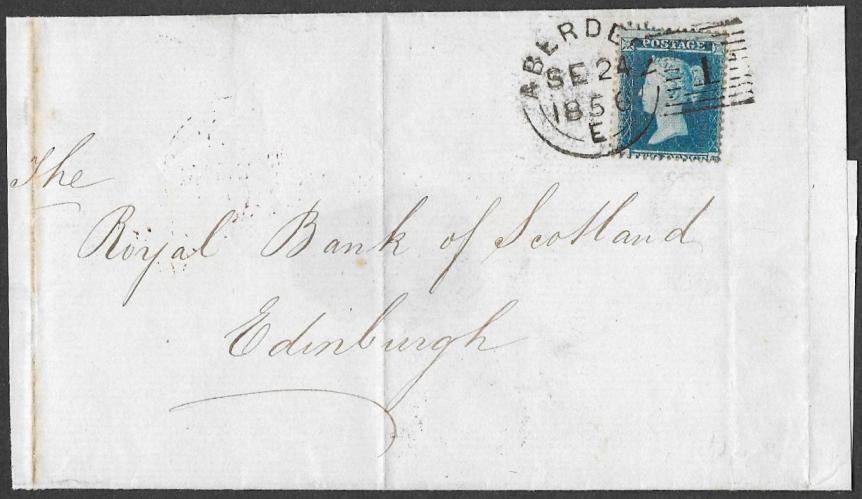 ABERDEE
SE 24
1856
E
POSTAGE
1
The
Royal Bank of Scotland
Edinburgh